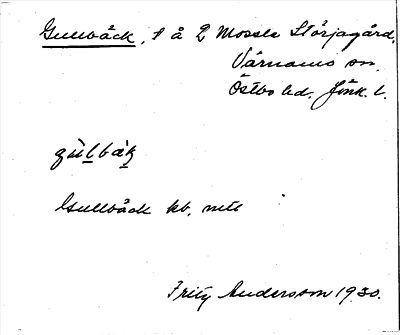 Gullbäck, t å 2 Mossle Störjagård,
Värnamo sn.
Östbo hd. Jönk. l.
gùlbák
Gullbäck kb, mtl
Fritz Andersson 1930.